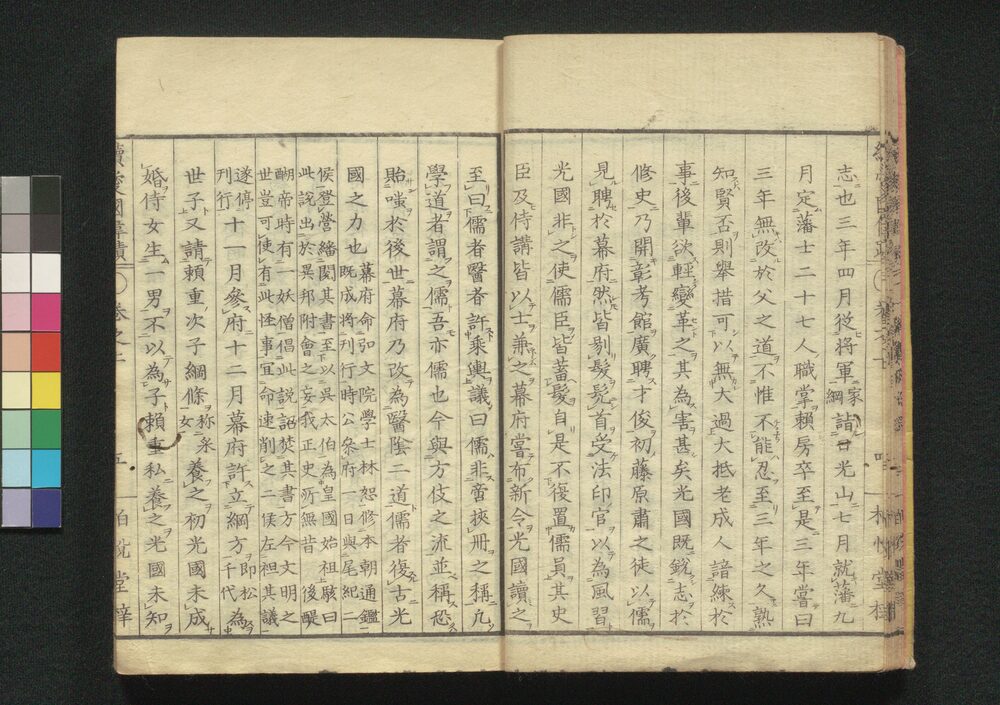 志也三年四月從將軍家綱詣日光山七月就藩九
月定藩士二十七人職掌賴房卒至是三年嘗曰
三年無改於父之道不惟不能忍至三年之久熟
知賢否則舉措可以無大過大抵老成人諳練於
事後輩欲輕變革之其為害甚矣光國既銳志於
修史乃開彰考館廣聘才俊初藤原肅之徒以儒
見聘於幕府然皆剔髮髡首受法印官以為風習
光國非之使儒臣皆蓄髮自是不復置儒員其史
臣及侍講皆以士兼之幕府嘗布新令光國讀之
至曰儒者醫者許乘輿議曰儒非啻挾冊之稱凡
學道者謂之儒吾亦儒也今與方伎之流並稱恐
貽嗤於後世幕府乃改為醫陰二道儒者復古光
國之力也
幕府命弘文院學士林恕修本朝通鑑
既成將刊行時公參府一日與尾紀二
侯登營繙閱其書至以吳太伯為皇國始祖駭曰
此說出於異邦附會之妄我正史所無昔後醍
醐帝時有一妖僧倡此說詔焚其書方今文明之
世豈可使有此怪事宜命速削之二侯左袒其議
遂停
刊行
十一月參府十二月幕府許立綱方
即松
千代
為
世子又請賴重次子綱條
稱采
女
養之初光國未成
婚侍女生一男不以為子賴重私養之光國未知
續愛國偉績
卷之二
五